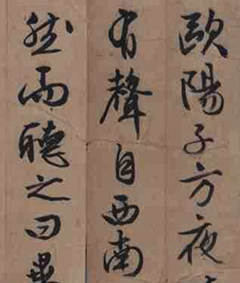 歐陽子方夜
有聲自西南
然而聽之曰異